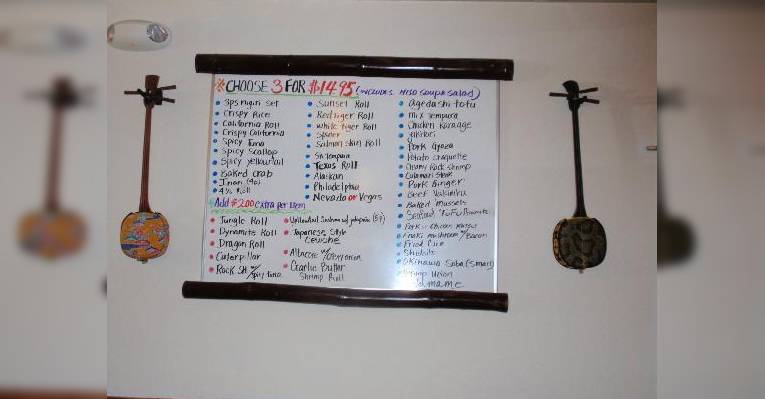 CHOOSE 3 FOR $14.95 (includes MISO SOUP & SALAD)
3ps nigiri set
Crispy Rice
California Roll
Crispy California
Spicy Tuna
Spicy Scallop
Spicy yellowtail
Baked Crab
Inari (4pc)
Sunset Roll
Red tiger Roll
White tiger Roll
Spider
Salmon Skin Roll
Sh. tempura
Texas Roll
Alaskan
Philadelphia
Nevada or Vegas
Add $2.00 extra per item
Jungle Roll
Dynamite Roll
Dragon Roll
Caterpillar
Rock SH w/ Spicy tuna
Japanese Style
Ceviche
Albacore w/
Garlic Butter
Shrimp Roll
Agedashi tofu
Mix tempura
Chicken Karaage
Yakitori
Pork Gyoza
Potato Croquette
Creamy Rock Shrimp
Calamari Steak
Pork Ginger
Beef Yakiniku
Baked mussels
Seafood
Pork or Chicken Katsu
Enoki mushroom w/ Bacon
Fried Rice
Shishito
Okinawa Soba (Small)